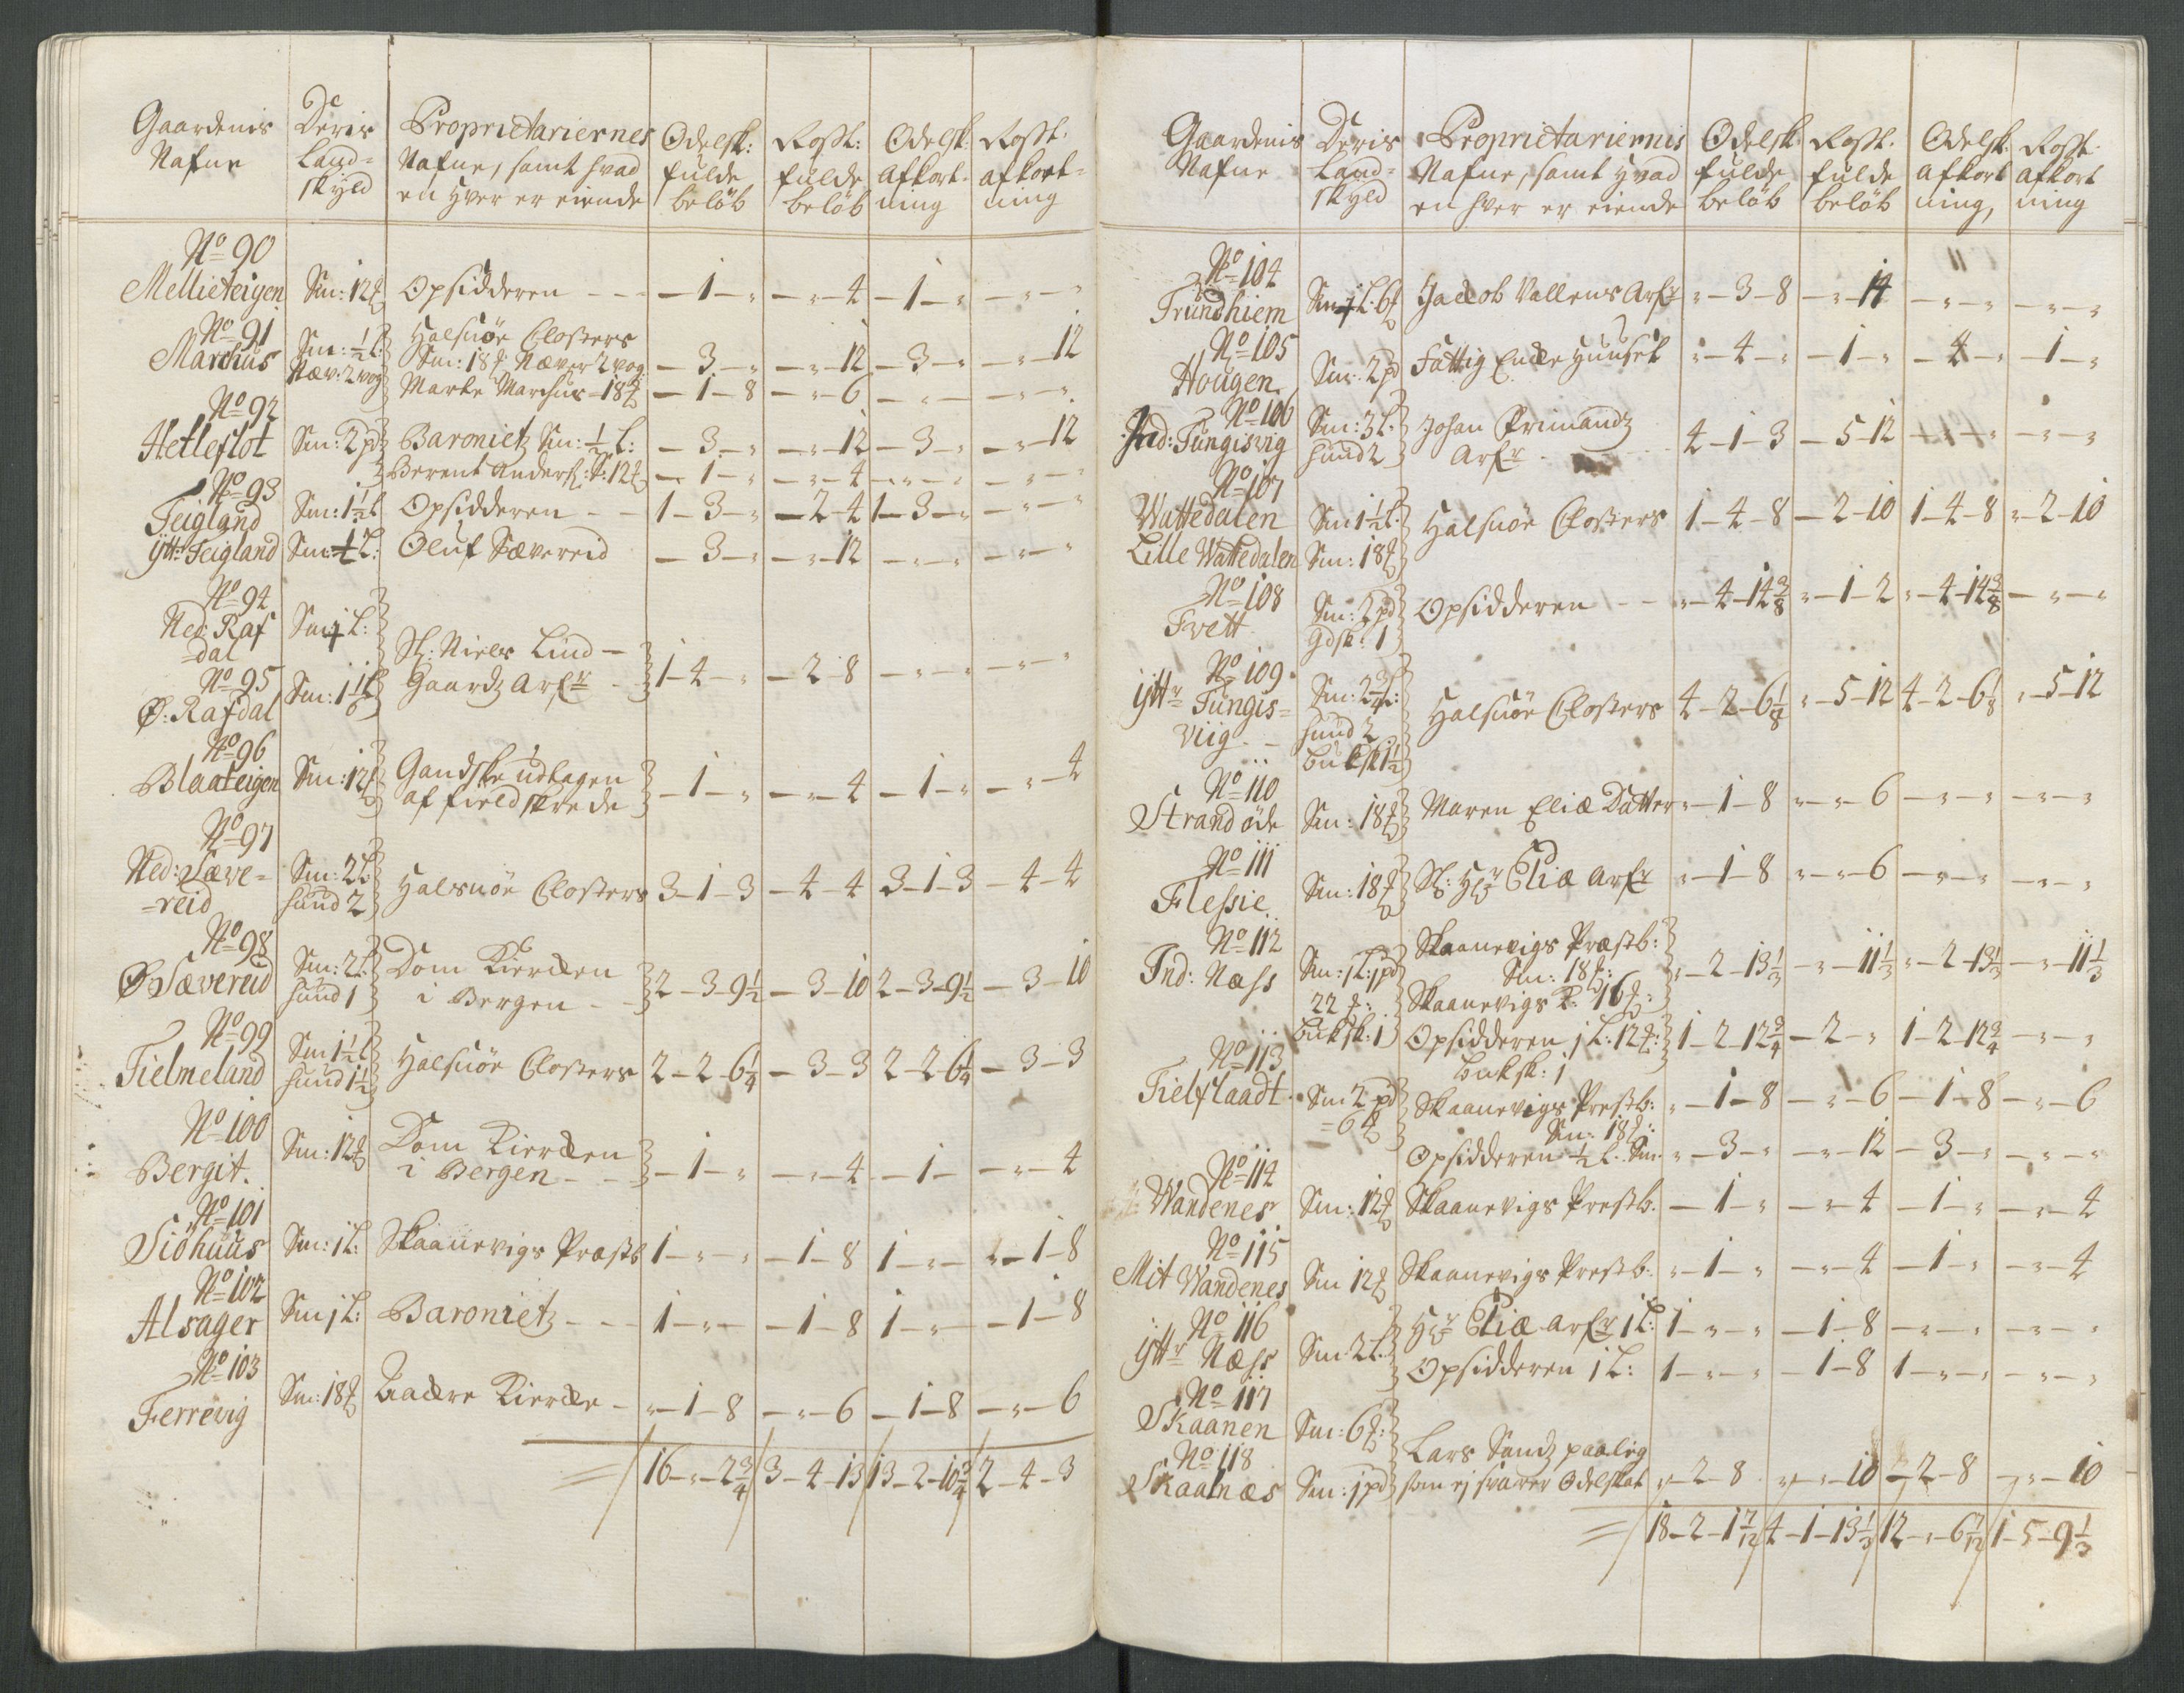 Gaardenis Nafne | Deris Land=skyld | Proprietariernes Nafne, samt hvad en hver er eiende | Odelsk: fulde beløb | Rostt: fulde beløb | Odelsk: afkort-ning | Rostt: afkort=ning
No 90
Mellieteigen Sm: 12 Opsidderen - - - 1 - " - " - 4 - 1 - " - " - "
No 91 Halsnöe Closters
Marchus Sm: ½ L: Næv: 2 vog Sm: 18 Næver 2 vog - 3 - " - " - 12 - 3 - " - " - 12
Marte Marchus - 18 - 1 - 8 - " - 6 - " - " - " - "
No 92
Hetleflot Sm: 2 pd Baroniet Sm: ½ L: - 3 - " - " - 12 - 3 - " - " - 12
Berent Anders: S: 12 - 1 - " - " - 4 - " - " - " - "
No 93
Teigland Sm: 1½ L Opsidderen - - 1 - 3 - " - 2 - 4 1 - 3 - " - " - "
ÿtt: Teigland Sm: ½ L: Oluf Sævereid - 3 - " - " - 12 - " - " - " - "
No 94
Ned: Raf=dal Sm 1 L:
Sl: Niels Lind-
No 95 Gaards Arfr - - 1 - 4 - " - 2 - 8 - " - " - " - "
Ø: Rafdal Sm: 1 1/6 L
No 96
Blaateigen Sm: 12 Gandske udtagen af fieldskrede - 1 - " - " - 4 - 1 - " - " - 4
No 97
Ned: Sæve=reid Sm: 2 L: huud 2 Halsnöe Closters 3 - 1 - 3 - 4 - 4 3 - 1 - 3 - 4 - 4
No 98
Ø Sævereid Sm: 2 L huud 1 Dom Kiercken i Bergen - - 2 - 3 - 9½ - 3 - 10 2 - 3 - 9½ - 3 - 10
No 99
Tielmeland Sm 1½ L huud 1½ Halsnöe Closters 2 - 2 - 6¼ - 3 - 3 2 - 2 - 6¼ - 3 - 3
No 100
Bergit. Sm: 12 Dom Kiercken i Bergen - - - 1 - " - " - 4 - 1 - - " - 4
No 101
Siöhuus Sm: 1 L: Skaanevigs Præstb 1 - " - " - 1 - 8 1 - " - " - 1 - 8
No 102
Alsager Sm 1 L: Baroniet - - - 1 - " - " - 1 - 8 1 - " - 1 - 8
No 103
Ferrevig Sm: 18 Kiercke - " - 1 - 8 - " - 6 - 1 - 8 - " - 6
16 - " - 2¾ 3 - 4 - 13 13 - 2 - 10¾ 2 - 4 - 3
Gaardenis Nafne | Deris Land=skyld | Proprietariernis Nafne, samt hvad en hver er eiende | Odelsk: fulde beløb | Rostt. fulde beløb | Odelsk: afkort ning, | Rostt. afkort ning
No 104
Trundhiem Sm ½ L: 6 Jacob Vallens Arfr " - 3 - 8 - " - 14 - " - " - " - "
No 105
Hougen Sm: 2 pd Fattig Encke Huuset " - 4 - " - 1 - " - 4 - " - 1 - "
No 106
Ind: Tungisvig Sm: 3 L: huud 2 Johan Frimands Arfr - 4 - 1 - 3 - 5 - 12 - " - " - " - "
No 107
Wattedalen Sm 1½ L. Halsnöe Closters 1 - 4 - 8 - 2 - 10 1 - 4 - 8 " - 2 - 10
Lille Wattedalen Sm: 18
No 108
Tvett Sm: 2 pd Gdsk: 1 Opsidderen - - " - 4 - 14⅜ " - 1 - 2 " - 4 - 14⅜ - " - "
No 109
ÿttr Tungis=viig - - Sm: 2¾ L: huud 2 Buksk 1½ Halsnöe Closters 4 - 2 - 6⅛ " - 5 - 12 4 - 2 - 6⅛ " - 5 - 12
No 110
Strandöde Sm: 18 Maren Eliæ Datter " - 1 - 8 " - " - 6 - " - " - " - "
No 111
Flessie Sm: 18 Sl: Hr Eliæ Arfr " - 1 - 8 " - " - 6 - " - " - " - "
No 112 Skaanevigs Præstb:
Ind: Næss Sm: 1 L: 1 pd 22 : Buksk: 1 Sm: 18 : Skaanevigs K: 16 : " - 2 - 13⅓ - " - 11⅓ " - 2 - 13⅓ - " - 11⅓
Opsidderen 1 L: 12 : Buksk: 1 1 - 2 - 12¾ - 2 - " 1 - 2 - 12¾ - " - "
No 113
Tielflaadt Sm 2 pd = 6 Skaanevigs Prestb: Sm: 18 : " - 1 - 8 - " - 6 - 1 - 8 - " - 6
Opsidderen ½ L. Sm " - 3 - " - " - 12 - 3 - " - " - "
No 114
Wandenes Sm: 12 Skaanevigs Prestb. - 1 - " - " - 4 - 1 - " - " - 4
No 115
Mit Wandenes Sm 12 Skaanevigs Prestb: " - 1 - " - " - 4 - 1 - " - " - 4
No 116
ÿttr Næss Sm: 2 L. Hr Eliæ Arfr 1 L: 1 - " - " - 1 - 8 - " - " - " - "
Opsidderen 1 L: 1 - " - " - 1 - 8 1 - " - " - " - "
No 117
Skaanen Sm: 6 :
No 118 Lars Sands paalig
Skaalnæs Sm: 1 pd som ej svarer Odelskat " - 2 - 8 " - " - 10 - 2 - 8 - " - 10
18 - 2 - 1 7/12 4 - 1 - 13⅓ 12 - " - 6 7/12 1 - 5 - 9⅓